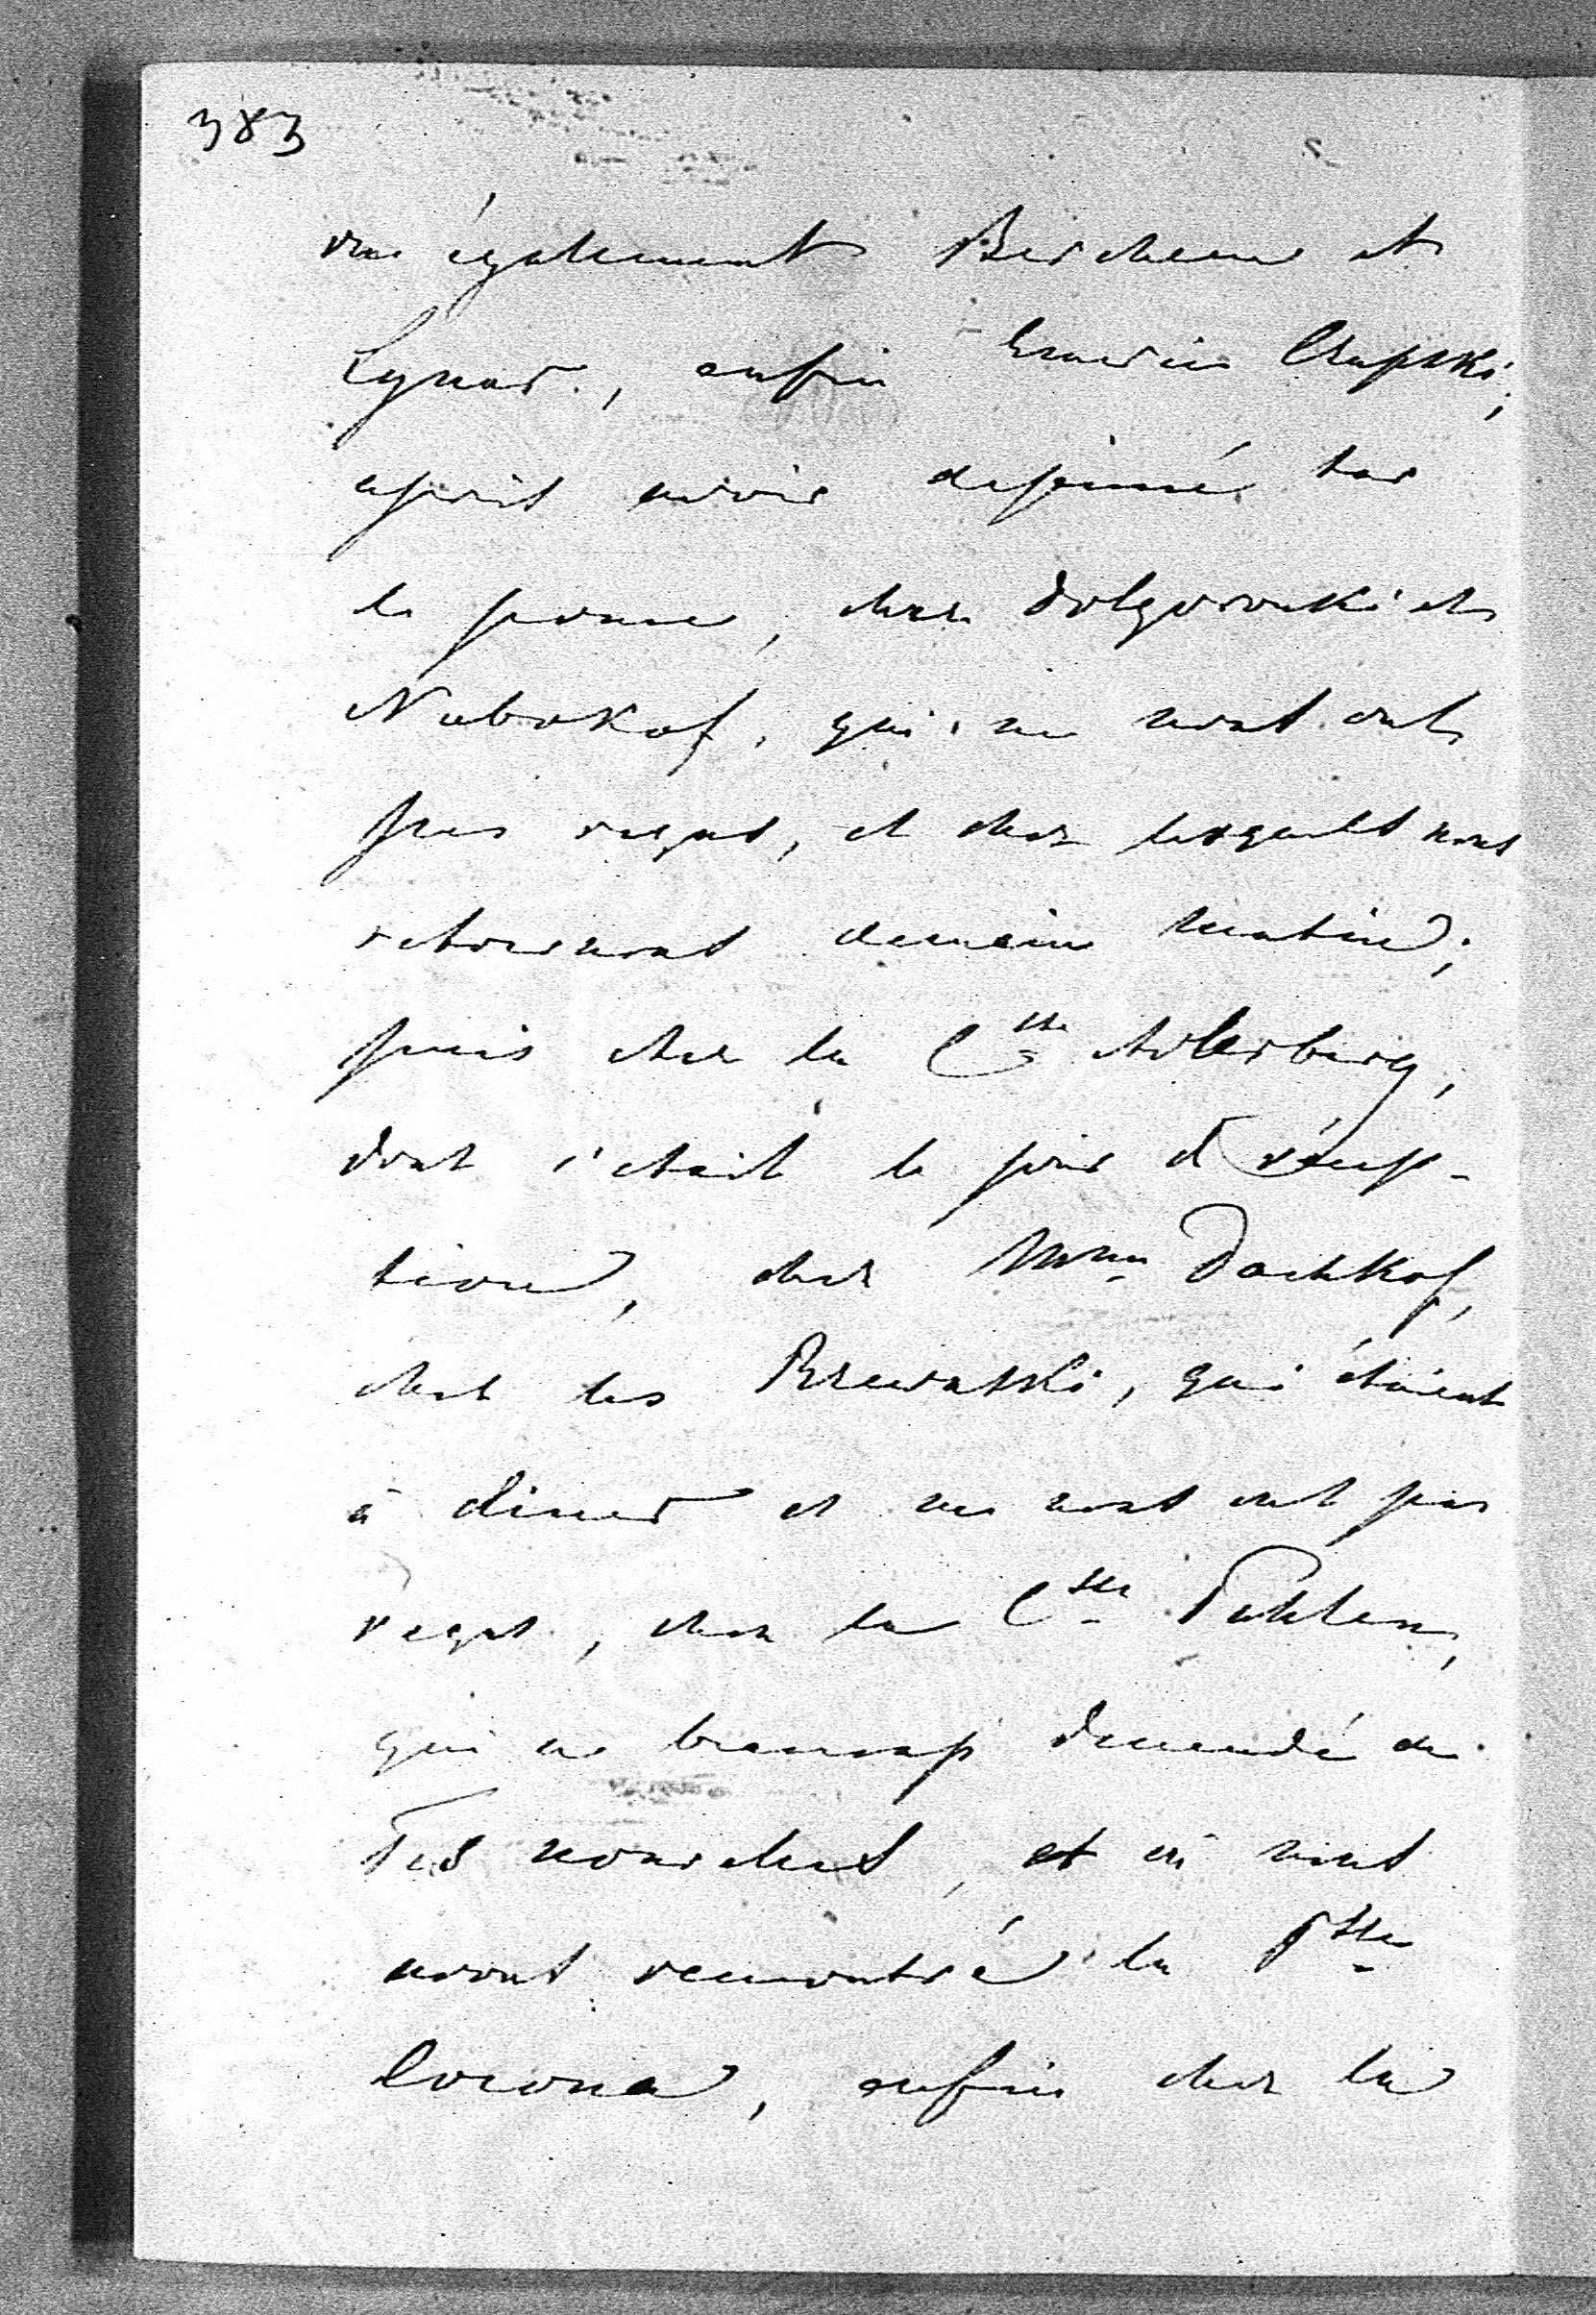 383
vu également Berchem et
Lynar, enfin Emeric Czapski;
après avoir déjeuné sur
le pouce, chez Dolgorouki et
Nabokof, qui ne nous ont
pas reçus, et chez lesquels nous
retournons demain matin;
puis chez la Csse Adlerberg,
dont c'était le jour de récep-
tion, chez Mme Dachkof,
chez les Rzewuski, qui étaient
à dîner et ne nous ont pas
reçus, chez la Csse Pahlen,
qui a beaucoup demandé de
Tes nouvelles, et où nous
avons rencontré la Psse
enfin chez la